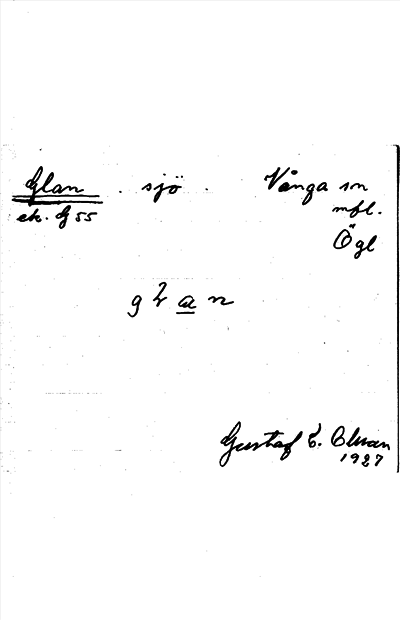 Glan . sjö . Vånga sn
ek. G 55 mfl.
Ögl
g λ a n
Gustaf E.
1927